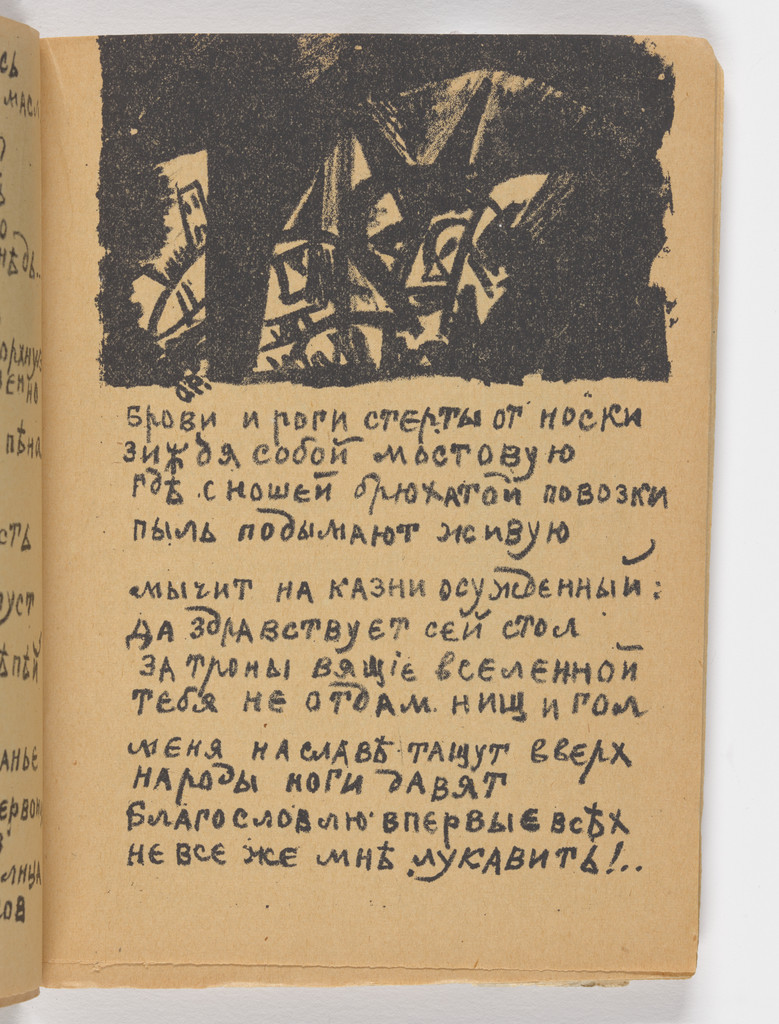 сь
о
нѣдь..
пѣна
сть
уст
ѣпѣй
анье
ервон
лица
ов
брови и роги стерты от носки
зиждя собой мостовую
гдѣ с ношей брюхатой повозки
пыль подымают живую
мычит на казни осужденный:
да здравствует сей стол
за троны вящіе вселенной
тебя не отдам нищ и гол
меня на славѣ тащут вверх
народы ноги давят
благословлю впервые всѣх
не все же мнѣ лукавить!..